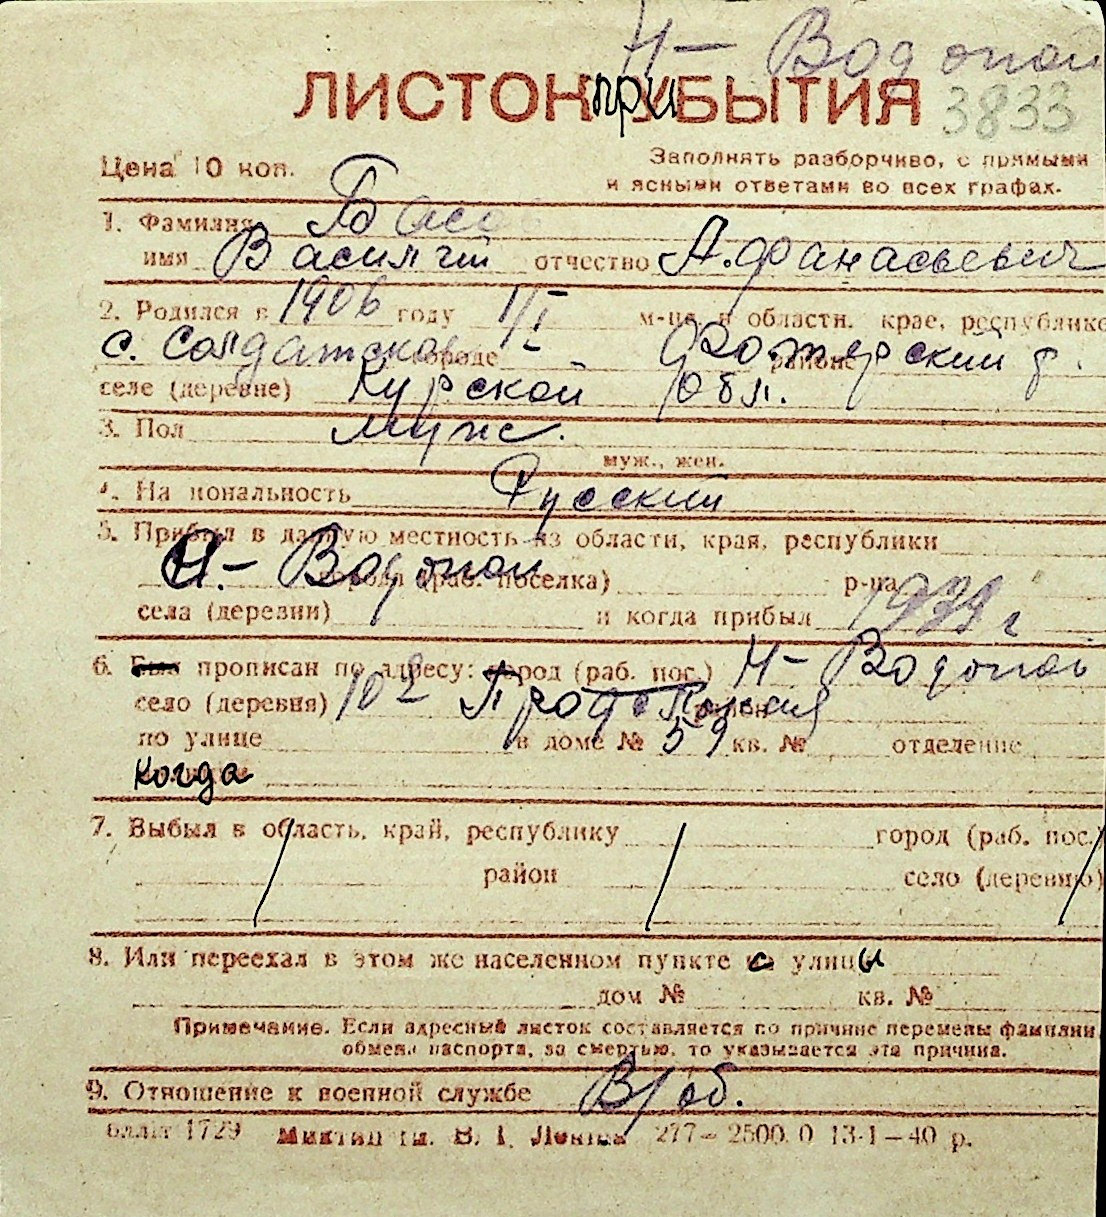 Н- Водопой
ЛИСТОК при БЫТИЯ 3833
Цена 10 коп. Заполнять разборчиво, с прямыми
и ясными ответами во всех графах.
1. Фамилия Басов
имя Василий отчество Афанасьевич
2. Родился в 1906 году 1/I м-ца в области, крае, республике
с. Солдатское городе районе р.
селе (деревне) Курской обл.
3. Пол муж.
муж., жен.
4. Национальность Русский
5. Прибыл в данную местность из области, края, республики
Н.- Водопой города (раб. поселка) р-на
села (деревни) и когда прибыл 1939 г
6. Был прописан по адресу: город (раб. пос.) Н- Водопой
село (деревня) 10я Продольная район
по улице в доме № 59 кв. № отделение
когда
7. Выбыл в область, край, республику город (раб. пос.)
район село (деревню)
8. Или переехал в этом же населенном пункте с улицы
дом № кв. №
Примечание. Если адресный листок составляется по причине перемены фамилии
обмена паспорта, за смертью, то указывается эта причина.
9. Отношение к военной службе В/об.
1729 им. В. І. Леніна 277—2500.0 13-1—40 р.